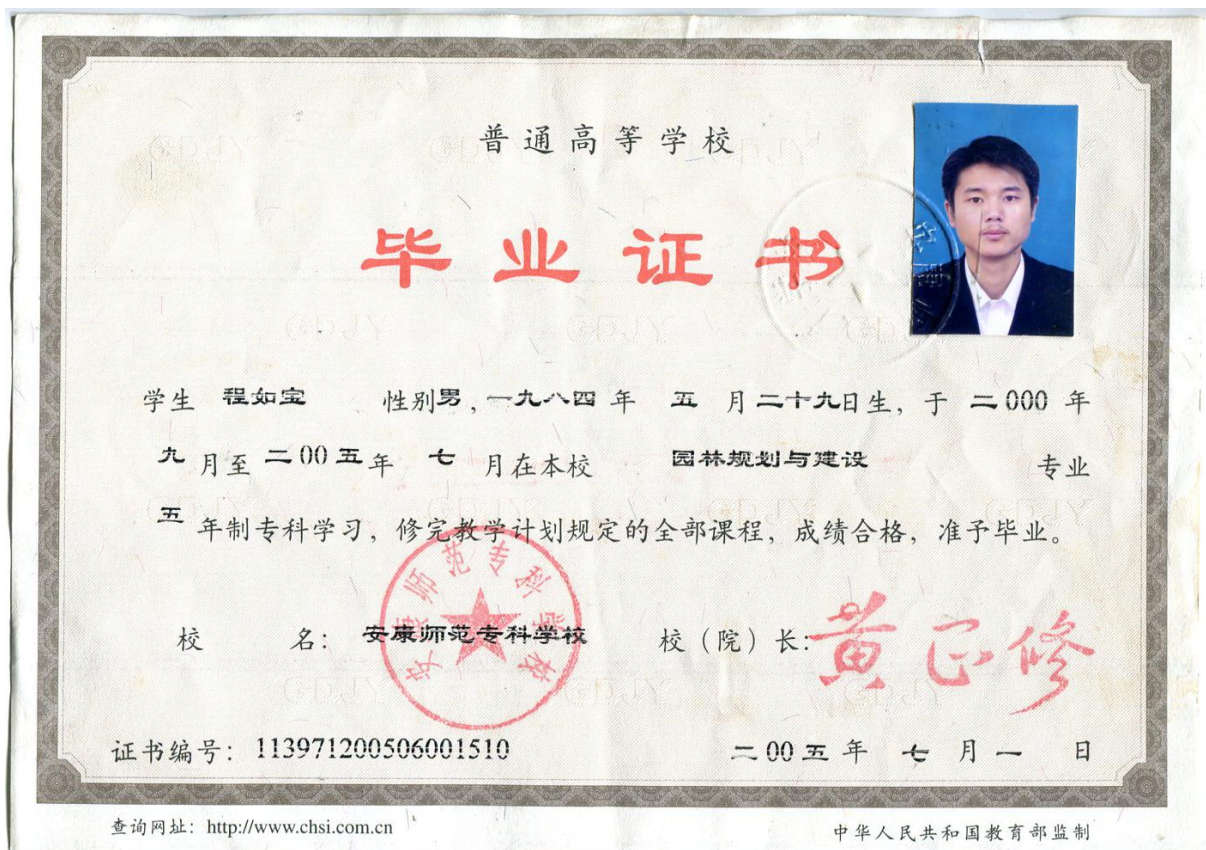 普通高等学校
毕业证书
学生 程如宝 性别男，一九八四年 五 月二十九日生，于 二000 年
九 月至 二00五年 七 月在本校 园林规划与建设 专业
五 年制专科学习，修完教学计划规定的全部课程，成绩合格，准予毕业。
安康师范专科学校
校 名：安康师范专科学校 校（院）长：黄正修
证书编号：113971200506001510 二00五年 七 月 一 日
查询网址：http://www.chsi.com.cn 中华人民共和国教育部监制